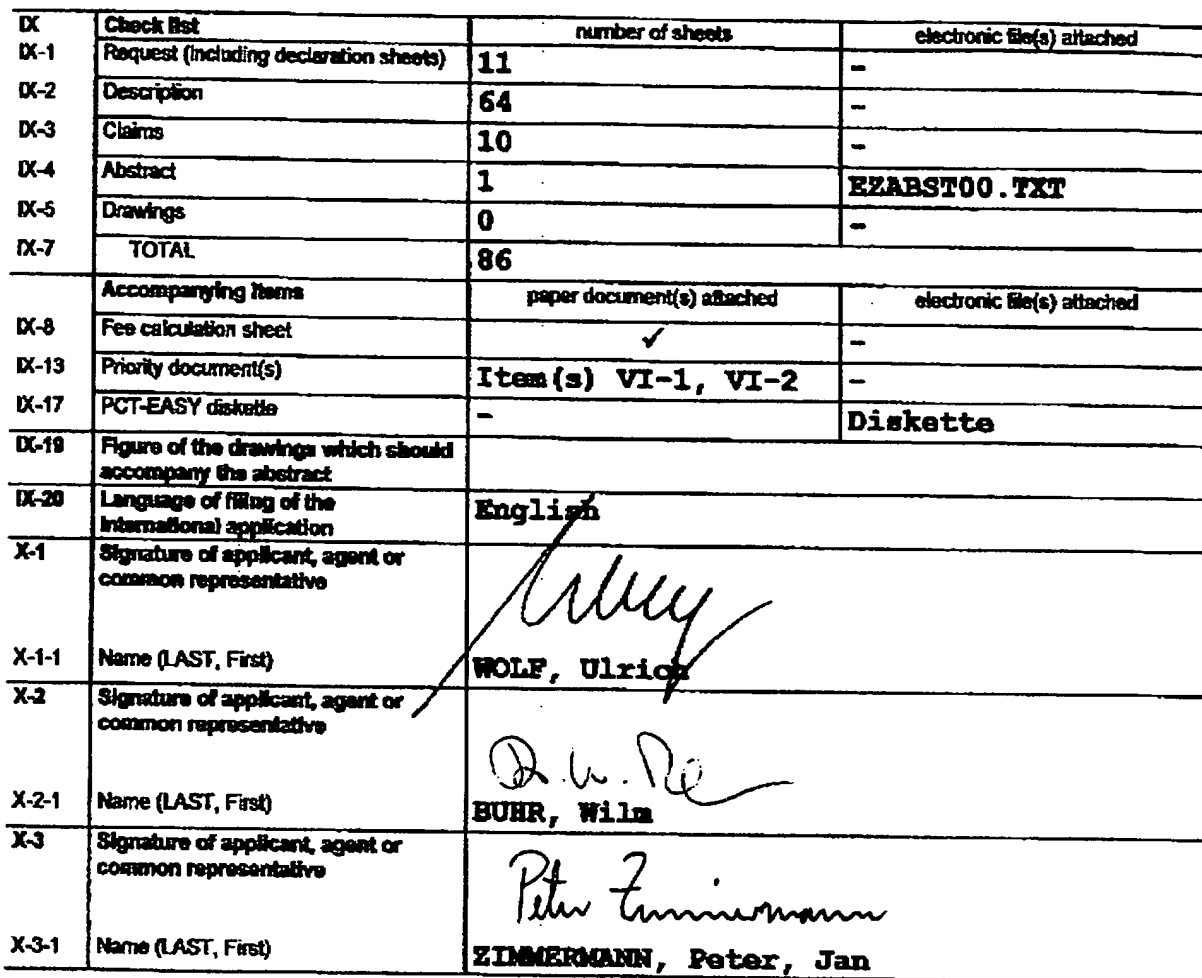 IX Check list number of sheets electronic file(s) attached
IX-1 Request (including declaration sheets) 11 -
IX-2 Description 64 -
IX-3 Claims 10 -
IX-4 Abstract 1 EZABST00.TXT
IX-5 Drawings 0 -
IX-7 TOTAL 86
Accompanying items paper document(s) attached electronic file(s) attached
IX-8 Fee calculation sheet ✓ -
IX-13 Priority document(s) Item(s) VI-1, VI-2 -
IX-17 PCT-EASY diskette - Diskette
IX-19 Figure of the drawings which should
accompany the abstract
IX-20 Language of filing of the English
international application
X-1 Signature of applicant, agent or
common representative
X-1-1 Name (LAST, First) WOLF, Ulrich
X-2 Signature of applicant, agent or
common representative
X-2-1 Name (LAST, First) BUHR, Wilm
X-3 Signature of applicant, agent or
common representative
Peter Zimmermann
X-3-1 Name (LAST, First) ZIMMERMANN, Peter, Jan